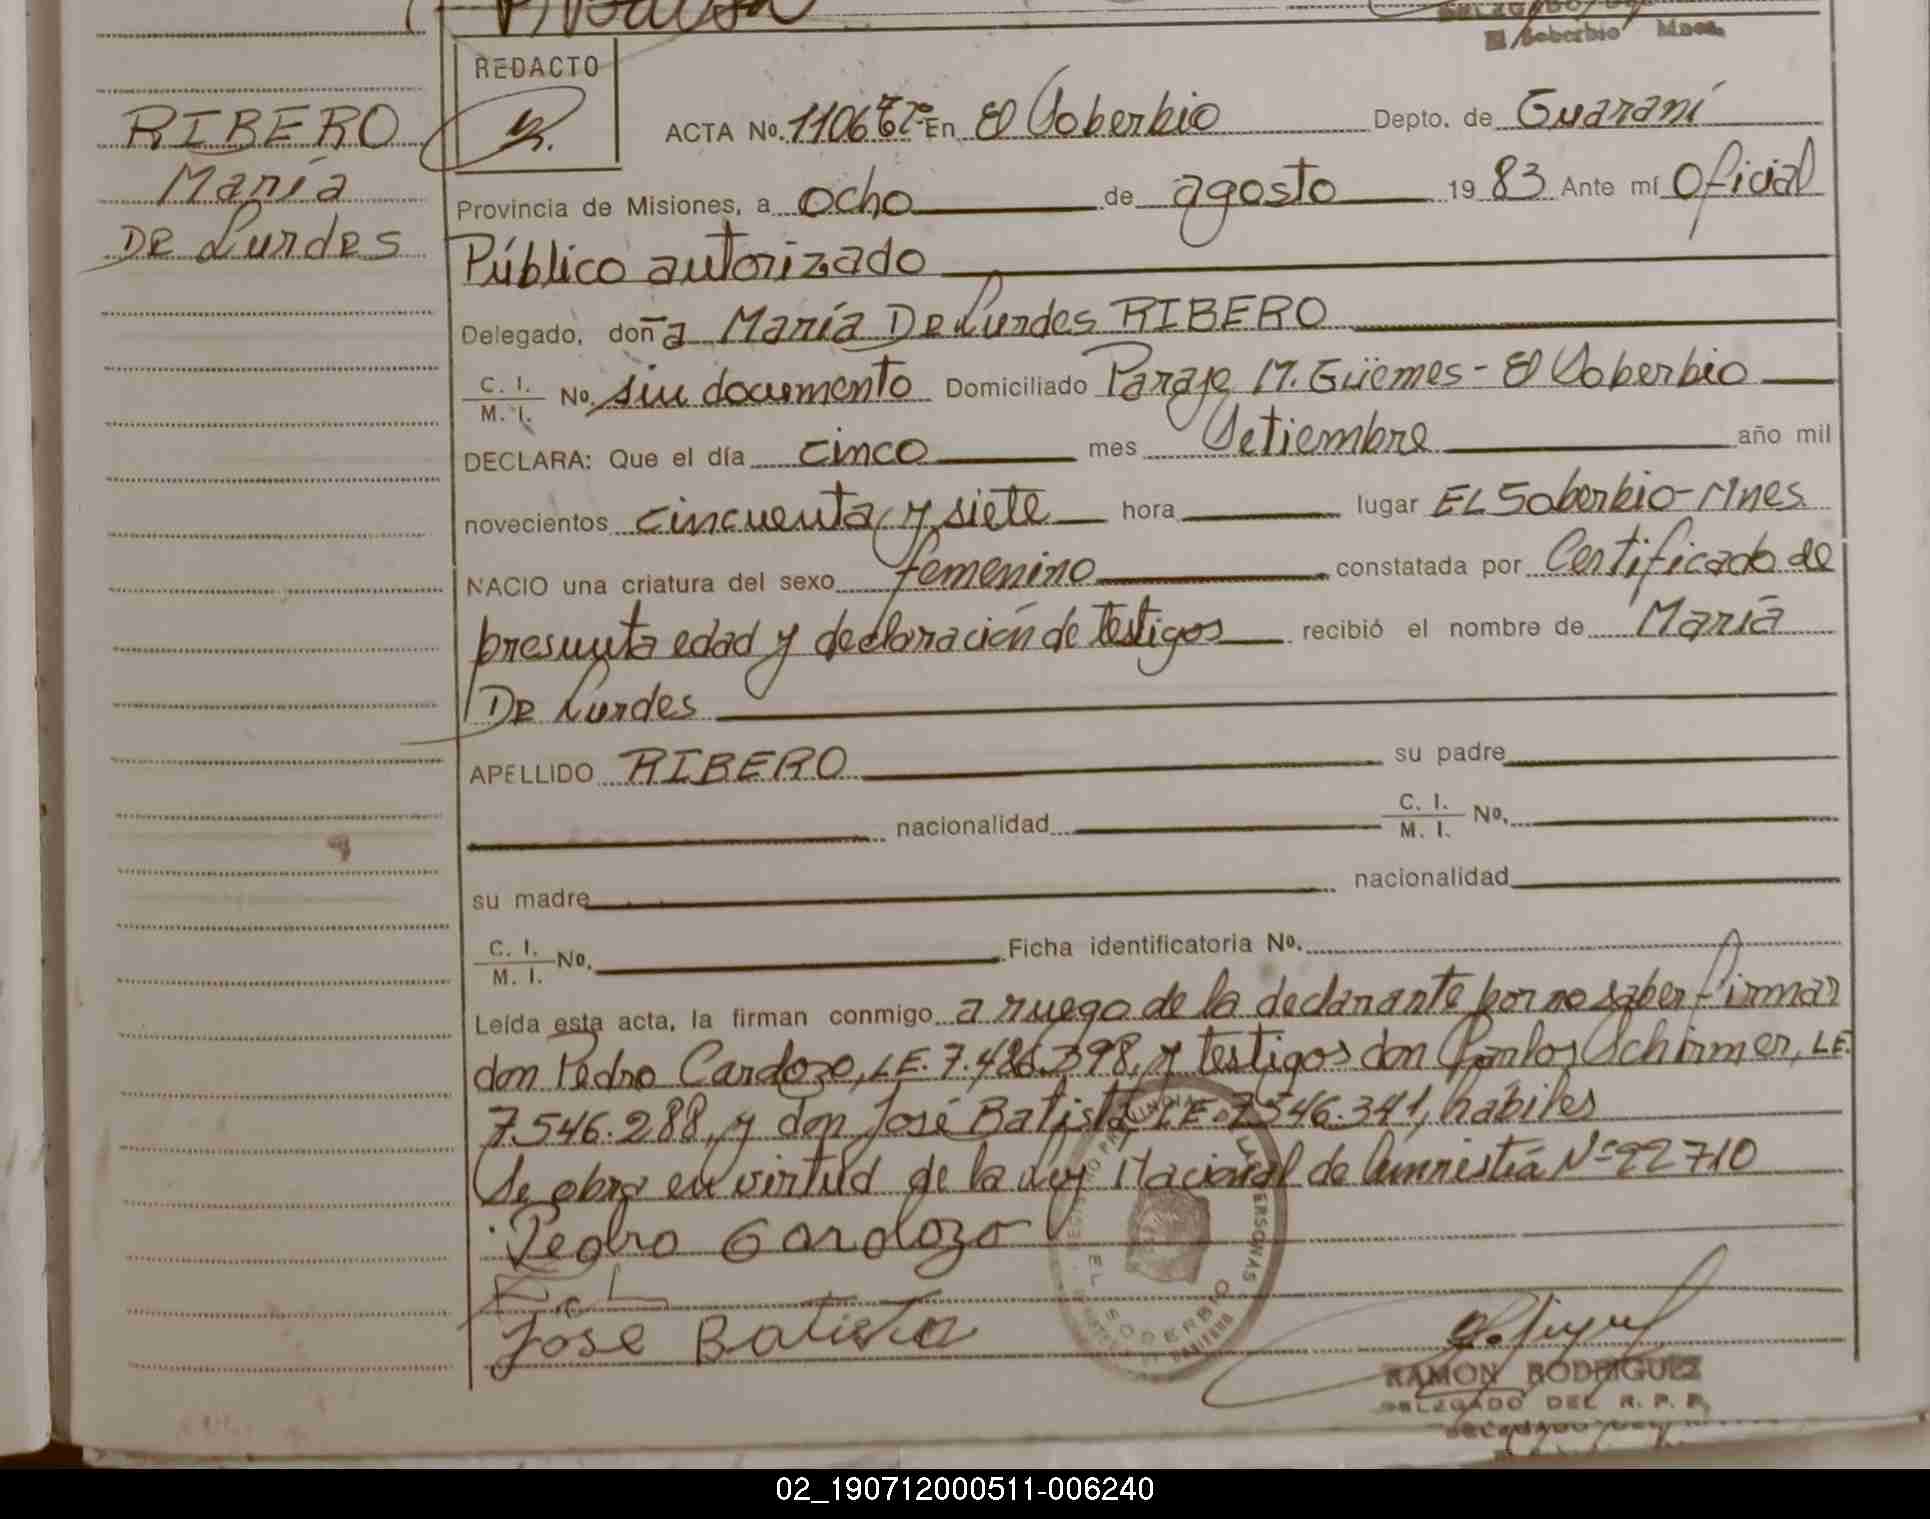 El Soberbio Mnes.
REDACTO
RIBERO
María
De Lurdes
ACTA No. 1106 En El Soberbio Depto. de Guaraní
Provincia de Misiones, a ocho de agosto 19 83 Ante mí Oficial
Público autorizado
Delegado, doña María De Lurdes RIBERO
C. I. / M. I. No. sin documento Domiciliado Paraje M. Güemes - El Soberbio
DECLARA: Que el día cinco mes Setiembre año mil
novecientos cincuenta y siete hora lugar EL Soberbio - Mnes
NACIO una criatura del sexo femenino constatada por Certificado de
presunta edad y declaración de testigos recibió el nombre de María
De Lurdes
APELLIDO RIBERO su padre
nacionalidad C. I. / M. I. No.
su madre nacionalidad
C. I. / M. I. No. Ficha identificatoria No.
Leída esta acta, la firman conmigo a ruego de la declarante por no saber firmar
don Pedro Cardozo, LE. 7.486.398, y testigos don Carlos Schirmer, LE.
7.546.288, y don José Batista LE. 7.546.341, hábiles
Se obra en virtud de la Ley Nacional de Amnistía Nº 22710
Pedro Cardozo
José Batista
EL SOBERBIO
RAMON RODRIGUEZ
DELEGADO DEL R. P. P.
02_190712000511-006240